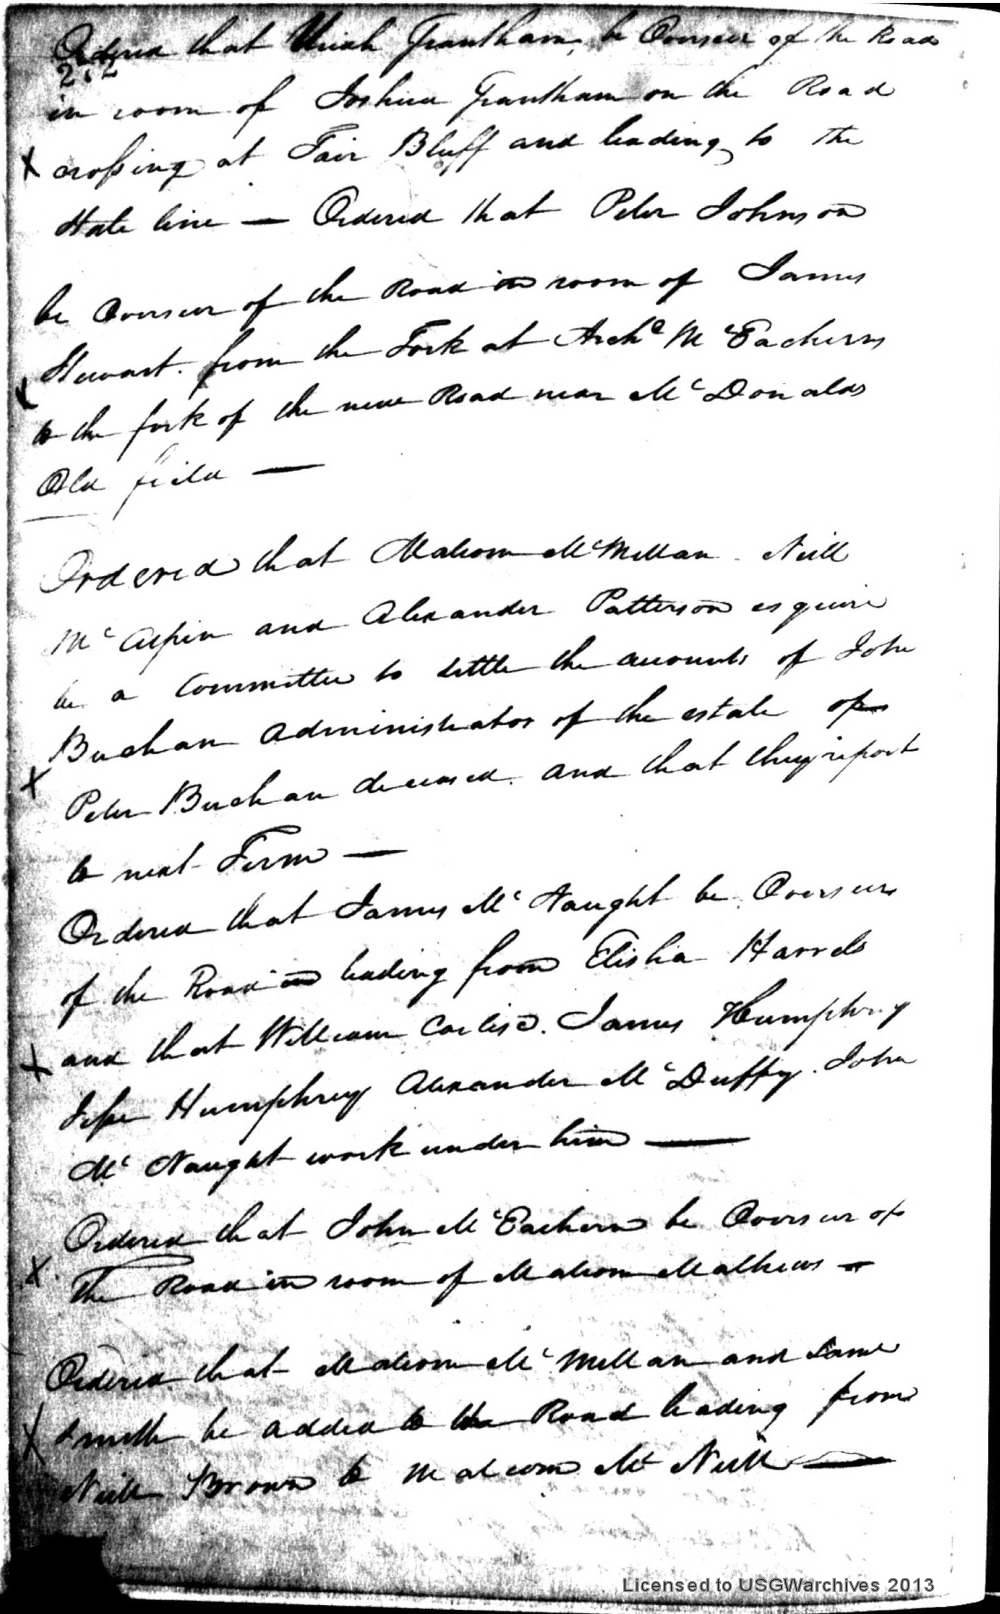 Ordered that Uriah Grantham, be Overseer of the Road
212
in room of Joshua Grantham on the Road
X crossing at Fair Bluff and leading to the
State line — Ordered that Peter Johnson
be Overseer of the Road in room of James
Stewart. from the Fork at Archd McEacherns
to the fork of the new Road near McDonalds
Old field —
Ordered that Malcom McMillan Neill
McAlpin and Alexander Patterson esquire
be a Committee to settle the accounts of John
Buchan administrator of the estate of
X Peter Buchan deceased. and that they report
to next Term —
Ordered that James McNaught be Overseer
of the Road leading from Elisha Harrels
X and that William Carlise. James Humphrey
Jesse Humphrey Alexander McDuffy. John
McNaught work under him —
Ordered that John McEachern be Overseer of
X. the Road in room of Malcom Mathews —
Ordered that Malcom McMillan and
X Smith be added to the Road leading from
Neill Brown to Malcom Mc Neill —
Licensed to USGWarchives 2013